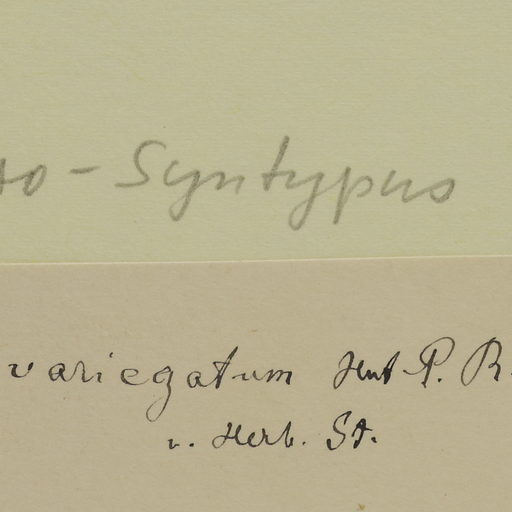 to-Syntypus
variegatum Hut P. R.
v. Herb. St.